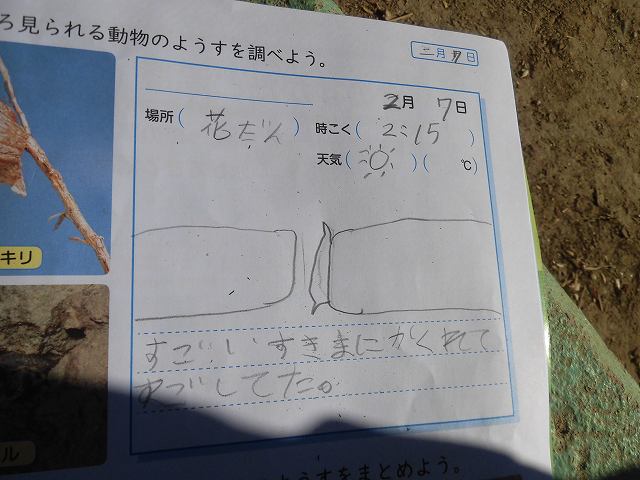 ろ見られる動物のようすを調べよう。
二月7日
2月 7日
場所( 花だん ) 時こく( 2:15 )
天気( )( ℃)
すごいすきまにかくれて
すごしてた。
キリ
ル
ようすをまとめよう。